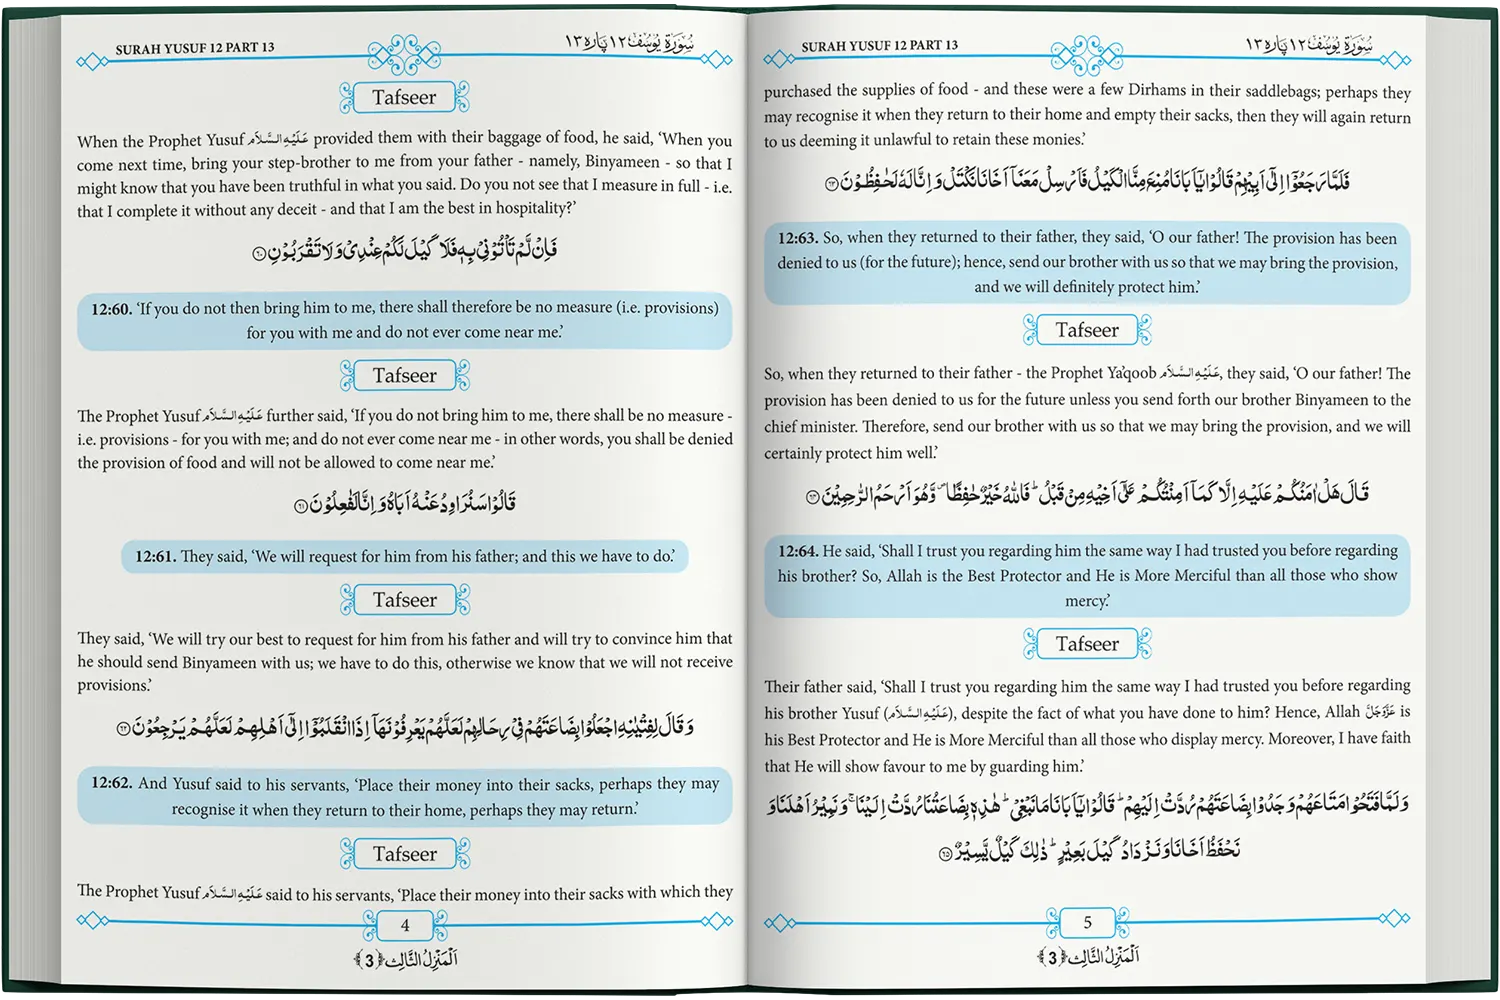 SURAH YUSUF 12 PART 13
سُوْرَةُ يُوسُف ١٢ پَاره ١٣
Tafseer
When the Prophet Yusuf عَلَيْهِ السَّلَام provided them with their baggage of food, he said, ‘When you
come next time, bring your step-brother to me from your father - namely, Binyameen - so that I
might know that you have been truthful in what you said. Do you not see that I measure in full - i.e.
that I complete it without any deceit - and that I am the best in hospitality?’
فَاِنْ لَّمْ تَاْتُوْنِیْ بِهٖ فَلَا كَیْلَ لَكُمْ عِنْدِیْ وَ لَا تَقْرَبُوْنِ ۶۰
12:60. ‘If you do not then bring him to me, there shall therefore be no measure (i.e. provisions)
for you with me and do not ever come near me.’
Tafseer
The Prophet Yusuf عَلَيْهِ السَّلَام further said, ‘If you do not bring him to me, there shall be no measure -
i.e. provisions - for you with me; and do not ever come near me - in other words, you shall be denied
the provision of food and will not be allowed to come near me.’
قَالُوْا سَنُرَاوِدُ عَنْهُ اَبَاهُ وَ اِنَّا لَفٰعِلُوْنَ ۶۱
12:61. They said, ‘We will request for him from his father; and this we have to do.’
Tafseer
They said, ‘We will try our best to request for him from his father and will try to convince him that
he should send Binyameen with us; we have to do this, otherwise we know that we will not receive
provisions.’
وَ قَالَ لِفِتْیٰنِهِ اجْعَلُوْا بِضَاعَتَهُمْ فِیْ رِحَالِهِمْ لَعَلَّهُمْ یَعْرِفُوْنَهَاۤ اِذَا انْقَلَبُوْۤا اِلٰۤى اَهْلِهِمْ لَعَلَّهُمْ یَرْجِعُوْنَ ۶۲
12:62. And Yusuf said to his servants, ‘Place their money into their sacks, perhaps they may
recognise it when they return to their home, perhaps they may return.’
Tafseer
The Prophet Yusuf عَلَيْهِ السَّلَام said to his servants, ‘Place their money into their sacks with which they
4
اَلْمَنْزِلُ الثَّالِث ﴿3﴾
SURAH YUSUF 12 PART 13
سُوْرَةُ يُوسُف ١٢ پَاره ١٣
purchased the supplies of food - and these were a few Dirhams in their saddlebags; perhaps they
may recognise it when they return to their home and empty their sacks, then they will again return
to us deeming it unlawful to retain these monies.’
فَلَمَّا رَجَعُوْۤا اِلٰۤى اَبِیْهِمْ قَالُوْا یٰۤاَبَانَا مُنِعَ مِنَّا الْكَیْلُ فَاَرْسِلْ مَعَنَاۤ اَخَانَا نَكْتَلْ وَ اِنَّا لَهٗ لَحٰفِظُوْنَ ۶۳
12:63. So, when they returned to their father, they said, ‘O our father! The provision has been
denied to us (for the future); hence, send our brother with us so that we may bring the provision,
and we will definitely protect him.’
Tafseer
So, when they returned to their father - the Prophet Ya’qoob عَلَيْهِ السَّلَام, they said, ‘O our father! The
provision has been denied to us for the future unless you send forth our brother Binyameen to the
chief minister. Therefore, send our brother with us so that we may bring the provision, and we will
certainly protect him well.’
قَالَ هَلْ اٰمَنُكُمْ عَلَیْهِ اِلَّا كَمَاۤ اَمِنْتُكُمْ عَلٰۤى اَخِیْهِ مِنْ قَبْلُؕ فَاللّٰهُ خَیْرٌ حٰفِظًا۪ وَّ هُوَ اَرْحَمُ الرّٰحِمِیْنَ ۶۴
12:64. He said, ‘Shall I trust you regarding him the same way I had trusted you before regarding
his brother? So, Allah is the Best Protector and He is More Merciful than all those who show
mercy.’
Tafseer
Their father said, ‘Shall I trust you regarding him the same way I had trusted you before regarding
his brother Yusuf (عَلَيْهِ السَّلَام), despite the fact of what you have done to him? Hence, Allah عَزَّوَجَلَّ is
his Best Protector and He is More Merciful than all those who display mercy. Moreover, I have faith
that He will show favour to me by guarding him.’
وَ لَمَّا فَتَحُوْا مَتَاعَهُمْ وَجَدُوْا بِضَاعَتَهُمْ رُدَّتْ اِلَیْهِمْؕ قَالُوْا یٰۤاَبَانَا مَا نَبْغِیْؕ هٰذِهٖ بِضَاعَتُنَا رُدَّتْ اِلَیْنَاۚ وَ نَمِیْرُ اَهْلَنَا وَ
نَحْفَظُ اَخَانَا وَ نَزْدَادُ كَیْلَ بَعِیْرٍؕ ذٰلِكَ كَیْلٌ یَّسِیْرٌ ۶۵
5
اَلْمَنْزِلُ الثَّالِث ﴿3﴾